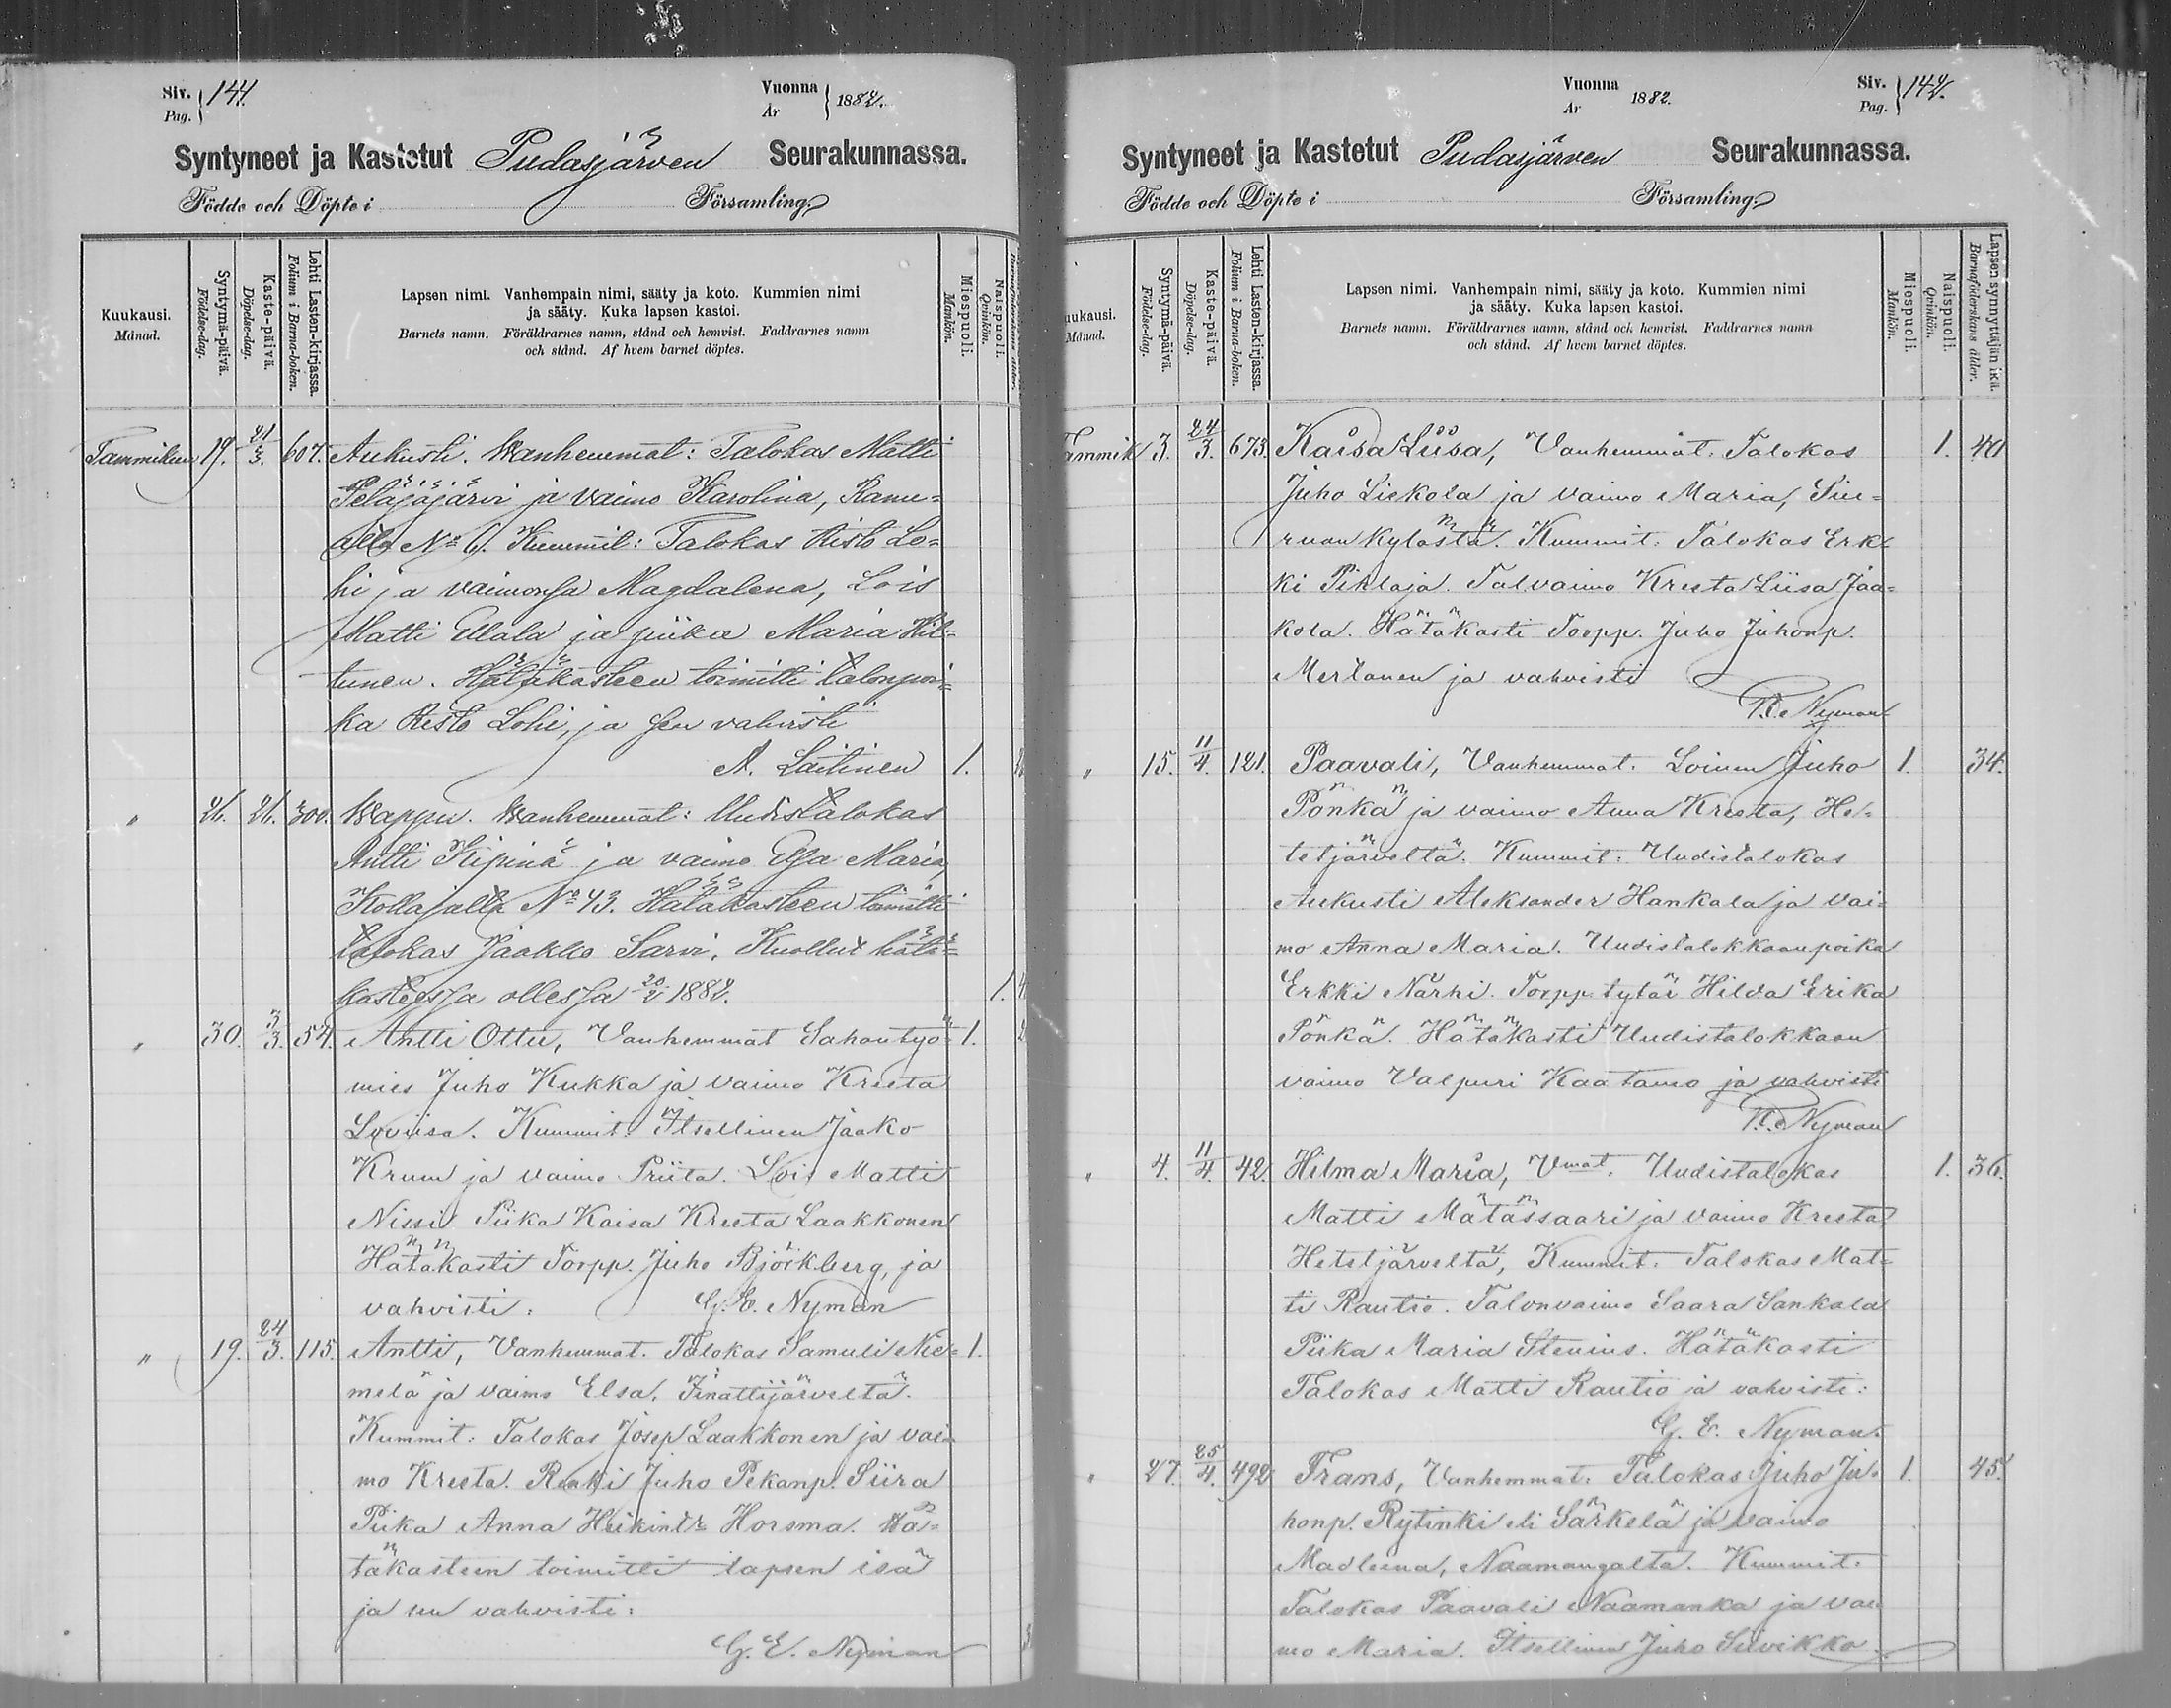 Siv. Pag. 141.
Vuonna År 1882.
Syntyneet ja Kastetut Pudasjärven Seurakunnassa.
Födde och Döpte i Församling
Kuukausi. Månad.
Syntymä-päivä. Födelse-dag.
Kaste-päivä. Döpelse-dag.
Lehti Lasten-kirjassa. Folium i Barna-boken.
Lapsen nimi. Vanhempain nimi, sääty ja koto. Kummien nimi
ja sääty. Kuka lapsen kastoi.
Barnets namn. Föräldrarnes namn, stånd och hemvist. Faddrarnes namn
och stånd. Af hvem barnet döptes.
Miespuoli. Mankön.
Naispuoli. Qvinkön.
Tammikuu 19. 21/3. 607. Aukusti. Wanhemmat: Talokas Matti
Peläjäjärvi ja vaimo Karolina, Ranu=
alla No 6. Kummit: Talokas Risto Lo=
hi ja vaimonsa Magdalena, Lois
Matti Ellala ja piika Maria Hil=
tunen. Hätäkasteen toimitti talonpoi=
ka Risto Lohi, ja sen vahvisti
A. Laitinen 1.
" 26. 26. 300. Wappu. Wanhemmat: Uudistalokas
Antti Kipinä ja vaimo Elsa Maria,
Kollajalla No 43. Hätäkasteen toimitti
talokas Jaakko Sarvi. Kuollut hätä=
kasteessa ollessa 20/2 1882. 1.
" 30. 3/3. 54. Antti Ottu, Vanhemmat Sahantyö= 1.
mies Juho Kukka ja vaimo Kreeta
Loviisa. Kummit: Itsellinen Jaako
Krum ja vaimo Priita. Lois Matti
Nissi Piika Kaisa Kreeta Laakkonen
Hätäkasti Torpp. Juho Björkberg, ja
vahvisti: G. E. Nyman
" 19. 24/3. 115. Antti, Vanhemmat. Talokas Samuli Nie= 1.
melä ja vaimo Elsa, Jinattijärveltä.
Kummit: Talokas Josep Laakkonen ja vai=
mo Kreeta. Renki Juho Pekanp. Siira
Piika Anna Heikintr Horsma. Hä=
täkasteen toimitti lapsen isä
ja sen vahvisti:
G. E. Nyman
Vuonna År 1882.
Siv. Pag. 142.
Syntyneet ja Kastetut Pudasjärven Seurakunnassa.
Födde och Döpte i Församling
uukausi. Månad.
Syntymä-päivä. Födelse-dag.
Kaste-päivä. Döpelse-dag.
Lehti Lasten-kirjassa. Folium i Barna-boken.
Lapsen nimi. Vanhempain nimi, sääty ja koto. Kummien nimi
ja sääty. Kuka lapsen kastoi.
Barnets namn. Föräldrarnes namn, stånd och hemvist. Faddrarnes namn
och stånd. Af hvem barnet döptes.
Miespuoli. Mankön.
Naispuoli. Qvinkön.
Lapsensynnyttäjän ikä. Barnaföderskans ålder.
Tammik 3. 24/3. 673. Kaisa Liisa, Vanhemmat. Talokas 1. 40
Juho Liekola ja vaimo Maria, Siu=
ruan kylästä. Kummit. Talokas Erk=
ki Pihlaja. Talvaimo Kreeta Liisa Jaa=
kola. Hätäkasti Torpp. Juho Juhonp.
Mertanen ja vahvisti
G. E. Nyman
" 15. 11/4. 121. Paavali, Vanhemmat. Loinen Juho 1. 34.
Pönkä ja vaimo Anna Kreeta, He=
tetjärveltä. Kummit: Uudistalokas
Aukusti Aleksander Hankala ja vai=
mo Anna Maria. Uudistalokkaanpoika
Erkki Närhi. Torpp. tytär Hilda Erika
Pönkä. Hätäkasti Uudistalokkaan
vaimo Valpuri Kaatamo ja vahvisti
G. E. Nyman
" 4. 11/4. 42. Hilma Maria, Vmat. Uudistalokas 1. 36.
Matti Mätässaari ja vaimo Kreeta
Hetetjärveltä, Kummit. Talokas Mat=
ti Rautio. Talonvaimo Saara Sankala
Piika Maria Stenius. Hätäkasti
Talokas Matti Rautio ja vahvisti:
G. E. Nyman.
" 27. 25/4. 492 Frans, Vanhemmat: Talokas Juho Ju= 1. 45.
honp. Rytinki eli Särkelä ja vaimo
Madleena, Naamangalta. Kummit.
Talokas Paavali Naamanka ja vai
mo Maria. Itsellinen Juho Siivikko